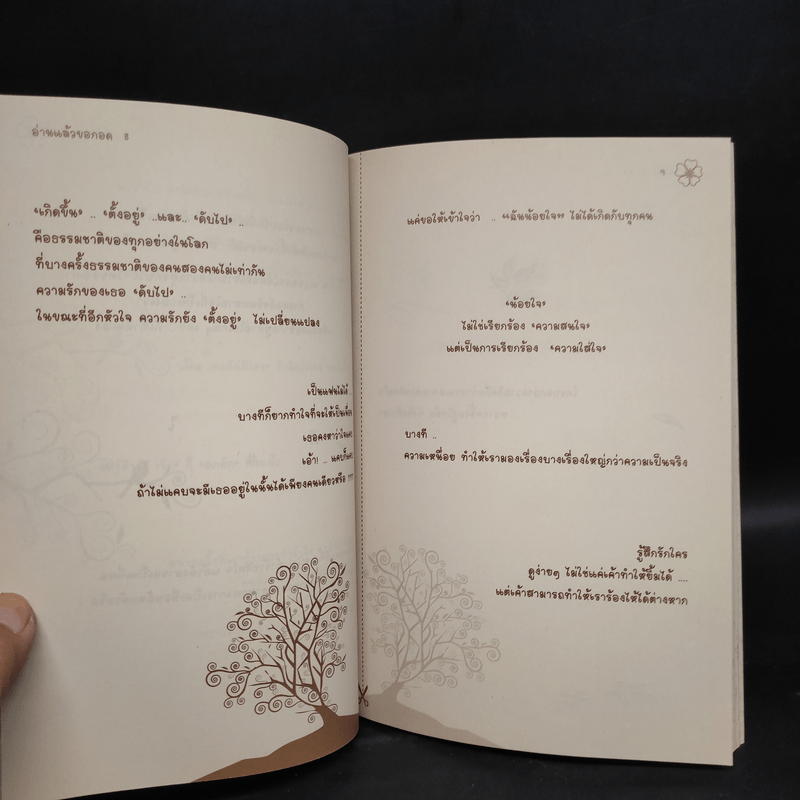 อ่านแล้วขอกอด ๘
'เกิดขึ้น' .. 'ตั้งอยู่' ..และ.. 'ดับไป' ..
คือธรรมชาติของทุกอย่างในโลก
ที่บางครั้งธรรมชาติของคนสองคนไม่เท่ากัน
ความรักของเธอ 'ดับไป' ..
ในขณะที่อีกหัวใจ ความรักยัง 'ตั้งอยู่' ไม่เปลี่ยนแปลง
เป็นแฟนไม่ได้ ..
บางทีก็ยากทำใจที่จะให้เป็นเพื่อน
เธอคงหาว่าใจแคบ
เอ้า! .. แคบก็แคบ
ถ้าไม่แคบจะมีเธออยู่ในนั้นได้เพียงคนเดียวหรือ
๙
แค่ขอให้เข้าใจว่า .. "ฉันน้อยใจ" ไม่ได้เกิดกับทุกคน
'น้อยใจ'
ไม่ใช่เรียกร้อง 'ความสนใจ'
แต่เป็นการเรียกร้อง 'ความใส่ใจ'
บางที ..
ความเหนื่อย ทำให้เรามองเรื่องบางเรื่องใหญ่กว่าความเป็นจริง
รู้สึกรักใคร
ดูง่ายๆ ไม่ใช่แค่เค้าทำให้ยิ้มได้ ....
แต่เค้าสามารถทำให้เราร้องไห้ได้ต่างหาก